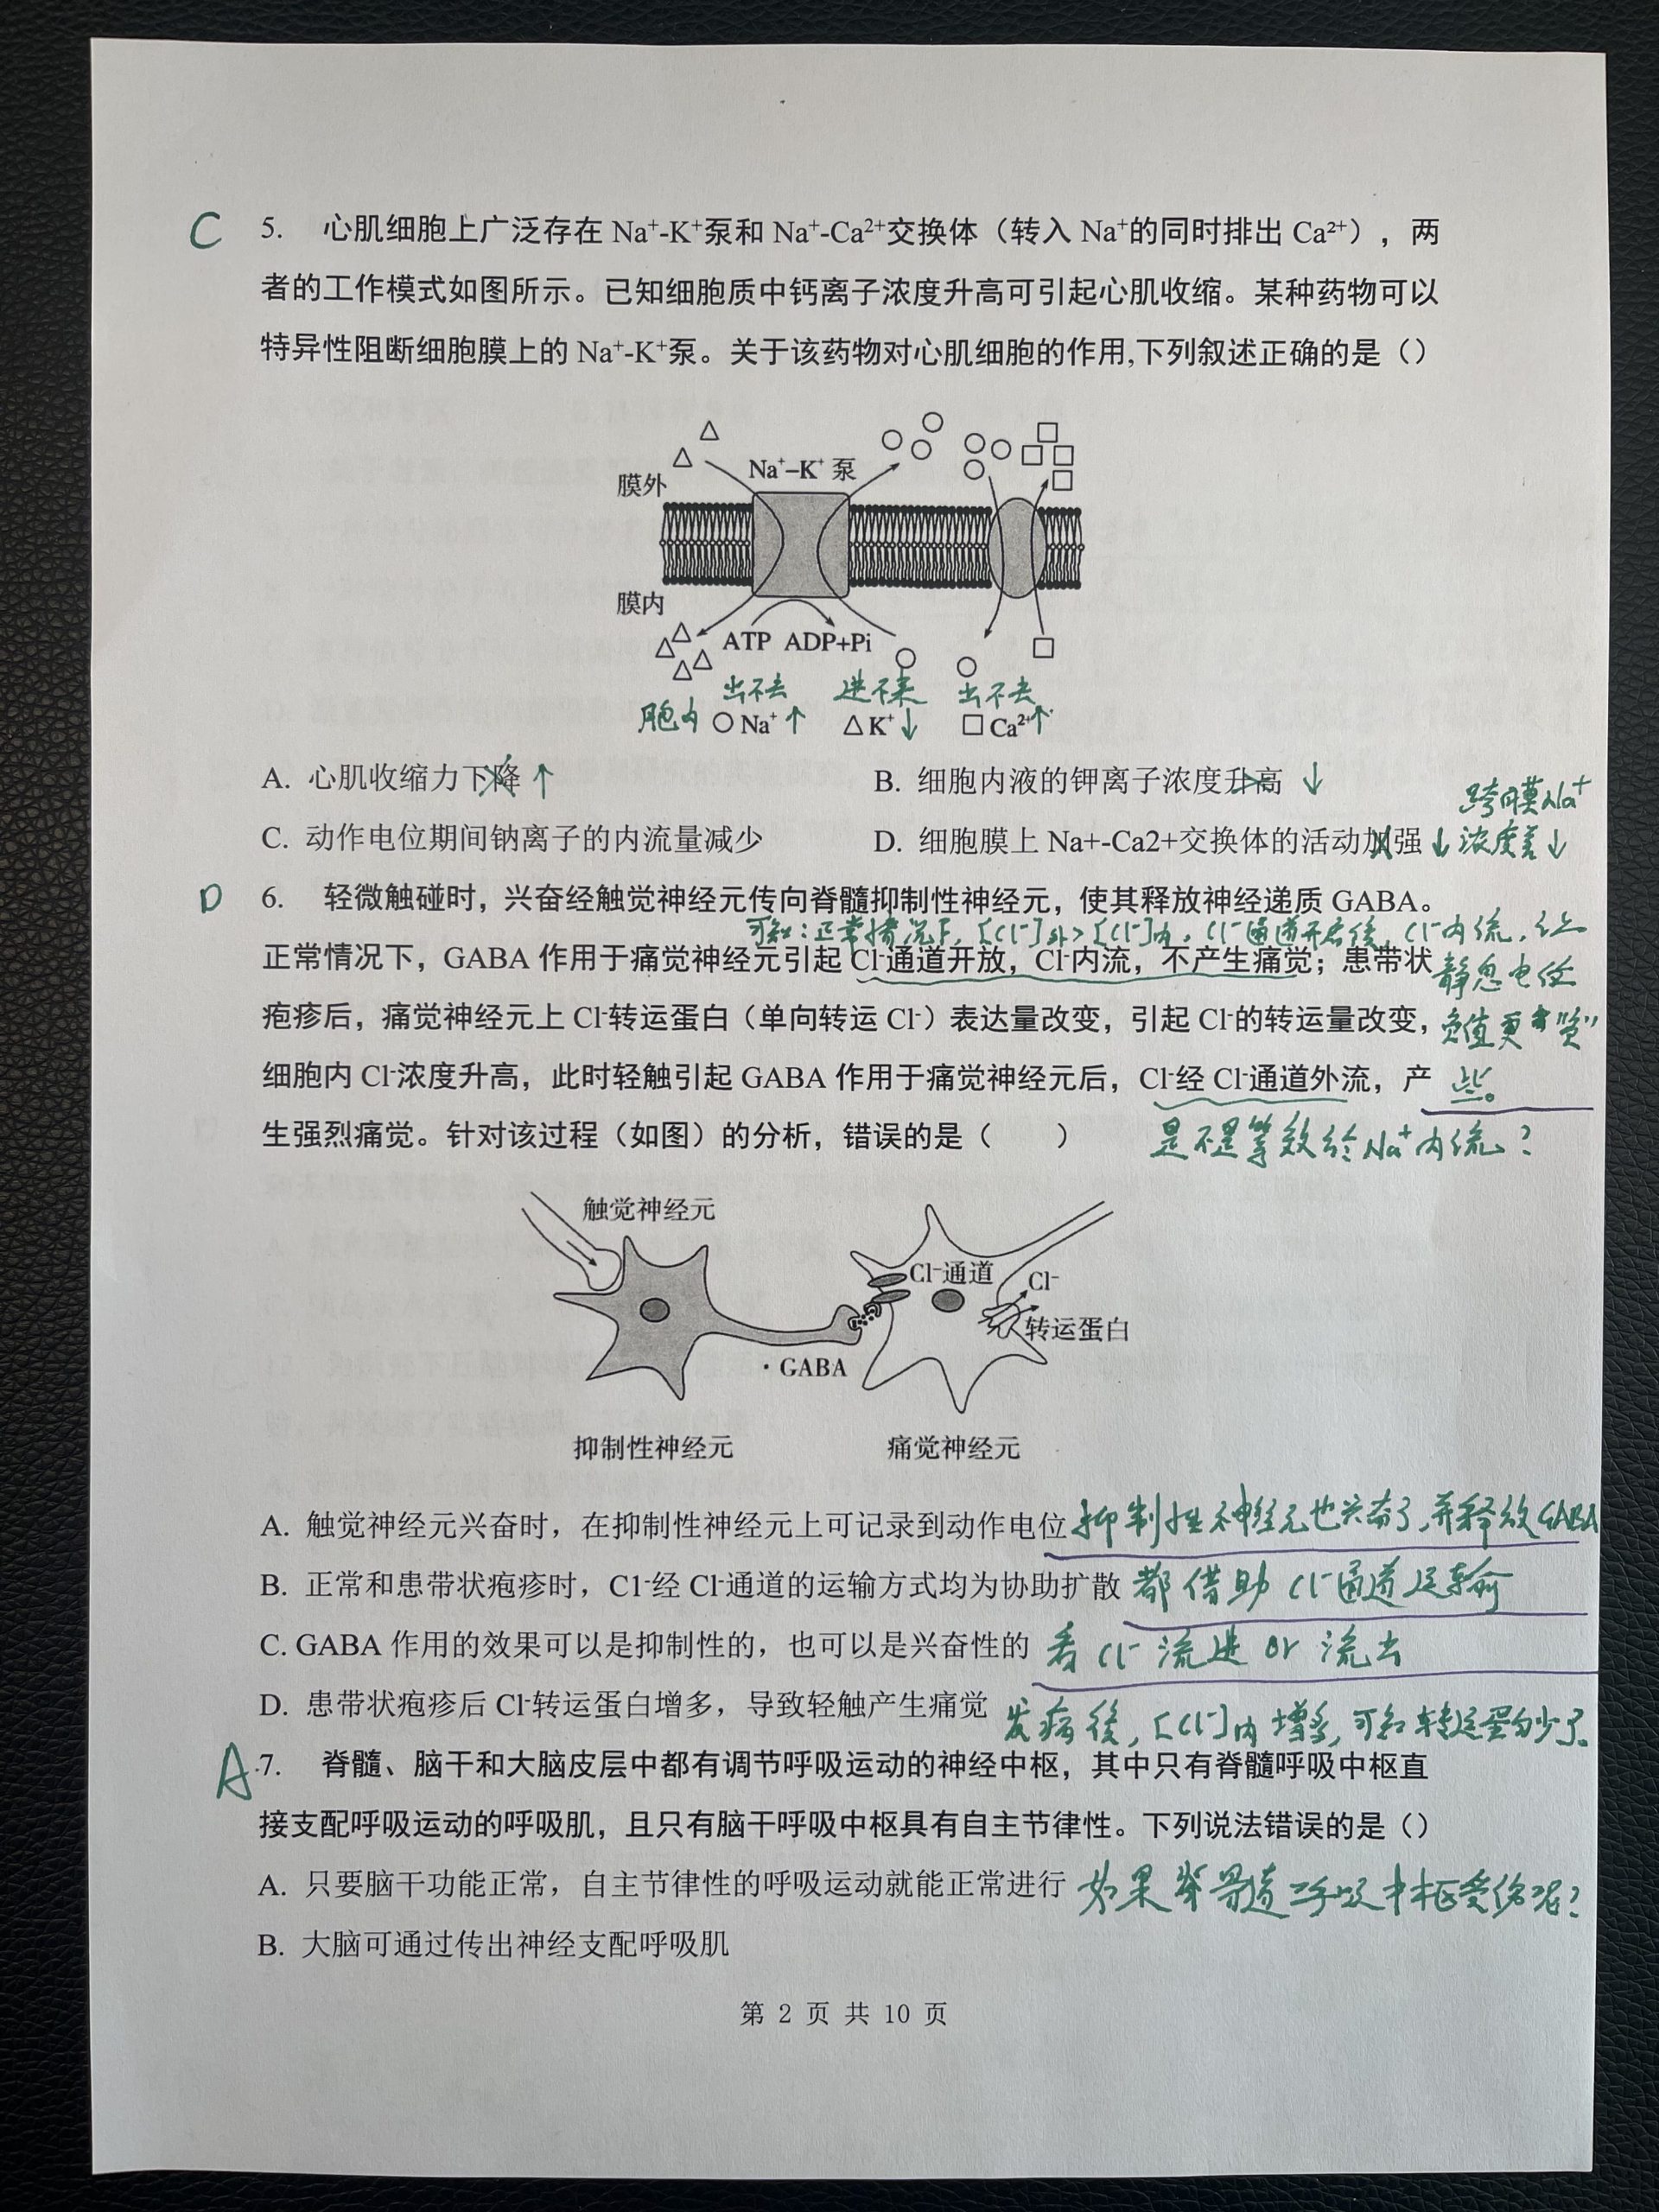 C 5. 心肌细胞上广泛存在 Na⁺-K⁺泵和 Na⁺-Ca²⁺交换体（转入 Na⁺的同时排出 Ca²⁺），两
者的工作模式如图所示。已知细胞质中钙离子浓度升高可引起心肌收缩。某种药物可以
特异性阻断细胞膜上的 Na⁺-K⁺泵。关于该药物对心肌细胞的作用,下列叙述正确的是（）
Na⁺–K⁺ 泵
膜外
膜内
ATP ADP+Pi
出不去 进不来 出不去
胞内 ○ Na⁺ ↑ △ K⁺ ↓ □ Ca²⁺ ↑
A. 心肌收缩力下降 ↑ B. 细胞内液的钾离子浓度升高 ↓
跨膜Na⁺
C. 动作电位期间钠离子的内流量减少 D. 细胞膜上 Na+-Ca2+交换体的活动加强 ↓ 浓度差↓
D 6. 轻微触碰时，兴奋经触觉神经元传向脊髓抑制性神经元，使其释放神经递质 GABA。
可知：正常情况下，[Cl⁻]外>[Cl⁻]内。Cl⁻通道开启后，Cl⁻内流，让
正常情况下，GABA 作用于痛觉神经元引起 Cl⁻通道开放，Cl⁻内流，不产生痛觉；患带状
静息电位
疱疹后，痛觉神经元上 Cl⁻转运蛋白（单向转运 Cl⁻）表达量改变，引起 Cl⁻的转运量改变，
负值更“负”
细胞内 Cl⁻浓度升高，此时轻触引起 GABA 作用于痛觉神经元后，Cl⁻经 Cl⁻通道外流，产
些。
生强烈痛觉。针对该过程（如图）的分析，错误的是（ ）
是不是等效于Na⁺内流？
触觉神经元
Cl⁻通道
Cl⁻
转运蛋白
· GABA
抑制性神经元 痛觉神经元
A. 触觉神经元兴奋时，在抑制性神经元上可记录到动作电位 抑制性神经元也兴奋了,并释放GABA
B. 正常和患带状疱疹时，C1⁻经 Cl⁻通道的运输方式均为协助扩散 都借助Cl⁻通道运输
C. GABA 作用的效果可以是抑制性的，也可以是兴奋性的 看Cl⁻流进 or 流出
D. 患带状疱疹后 Cl⁻转运蛋白增多，导致轻触产生痛觉 发病後，[Cl⁻]内增多，可知转运蛋白少了。
A 7. 脊髓、脑干和大脑皮层中都有调节呼吸运动的神经中枢，其中只有脊髓呼吸中枢直
接支配呼吸运动的呼吸肌，且只有脑干呼吸中枢具有自主节律性。下列说法错误的是（）
A. 只要脑干功能正常，自主节律性的呼吸运动就能正常进行 如果脊髓呼吸中枢受伤呢？
B. 大脑可通过传出神经支配呼吸肌
第 2 页 共 10 页